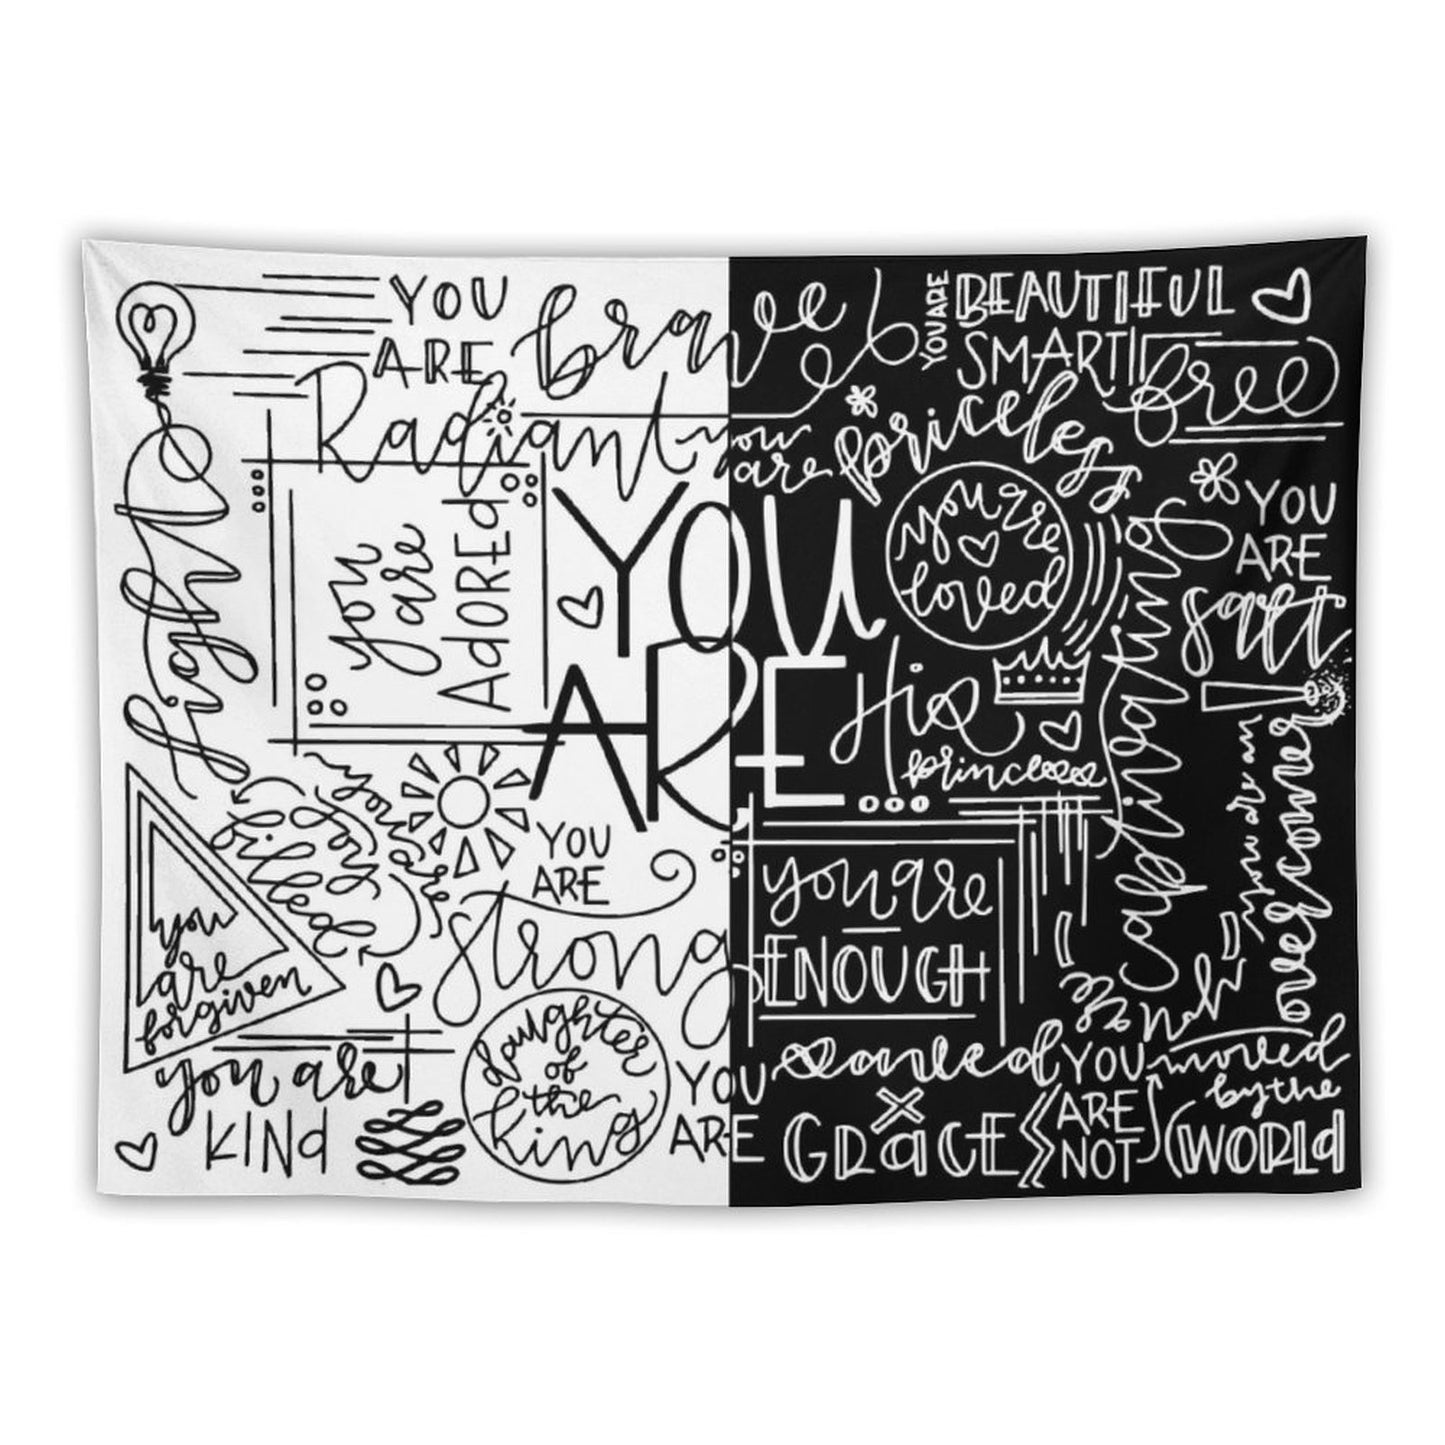 YOU
ARE
brave
Radiant
light
you
are
ADORED
YOU
ARE
you are
filled
for
you
are
forgiven
YOU
ARE
strong
you are
KINd
daughter
of
the
king
YOU
ARE
YOU ARE
BEAUTIFUL
SMART
free
you
are
priceless
you are
loved
His
princess
captivating
YOU
ARE
salt
you are an
overcomer
you are
ENOUGH
saved
x
GRaCE
YOU
ARE
NOT
moved
by the
WORLd